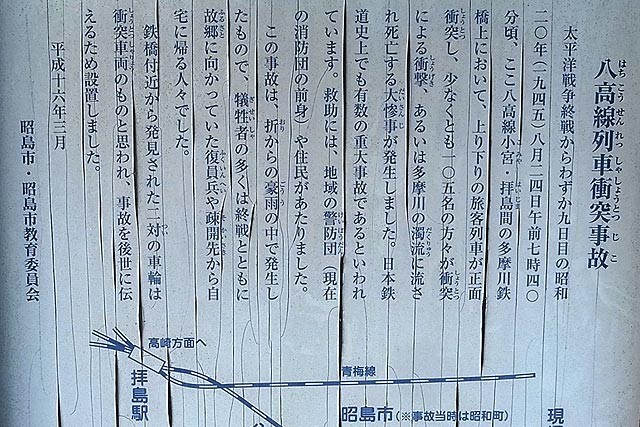 八高線列車衝突事故
はちこうせんれっしゃしょうとつじこ
太平洋戦争終戦からわずか九日目の昭和
二〇年(一九四五)八月二四日午前七時四〇
分頃、ここ八高線小宮・拝島間の多摩川鉄
橋上において、上り下りの旅客列車が正面
衝突し、少なくとも一〇五名の方々が衝突
による衝撃、あるいは多摩川の濁流に流さ
れ死亡する大惨事が発生しました。日本鉄
道史上でも有数の重大事故であるといわれ
ています。救助には、地域の警防団(現在
の消防団の前身)や住民があたりました。
この事故は、折からの豪雨の中で発生し
たもので、犠牲者の多くは終戦とともに
故郷に向かっていた復員兵や疎開先から自
宅に帰る人々でした。
鉄橋付近から発見された二対の車輪は
衝突車両のものと思われ、事故を後世に伝
えるため設置しました。
平成十六年三月
昭島市・昭島市教育委員会
高崎方面へ
拝島駅
青梅線
昭島市(※事故当時は昭和町)
現